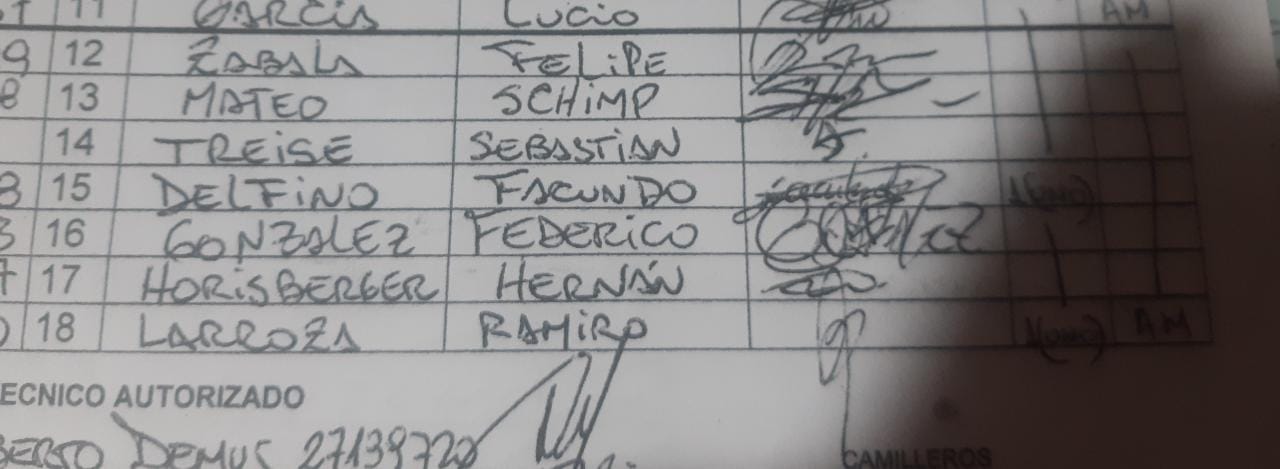 11 GARCIA LUCIO AM
9 12 ZABALA FELIPE
8 13 MATEO SCHIMP
14 TREISE SEBASTIAN
3 15 DELFINO FACUNDO 1(UNO)
3 16 GONZALEZ FEDERICO
7 17 HORISBERGER HERNÁN
18 LARROZA RAMIRO 1(UNO) AM
ECNICO AUTORIZADO
BERTO DEMUS 27139720
CAMILLEROS